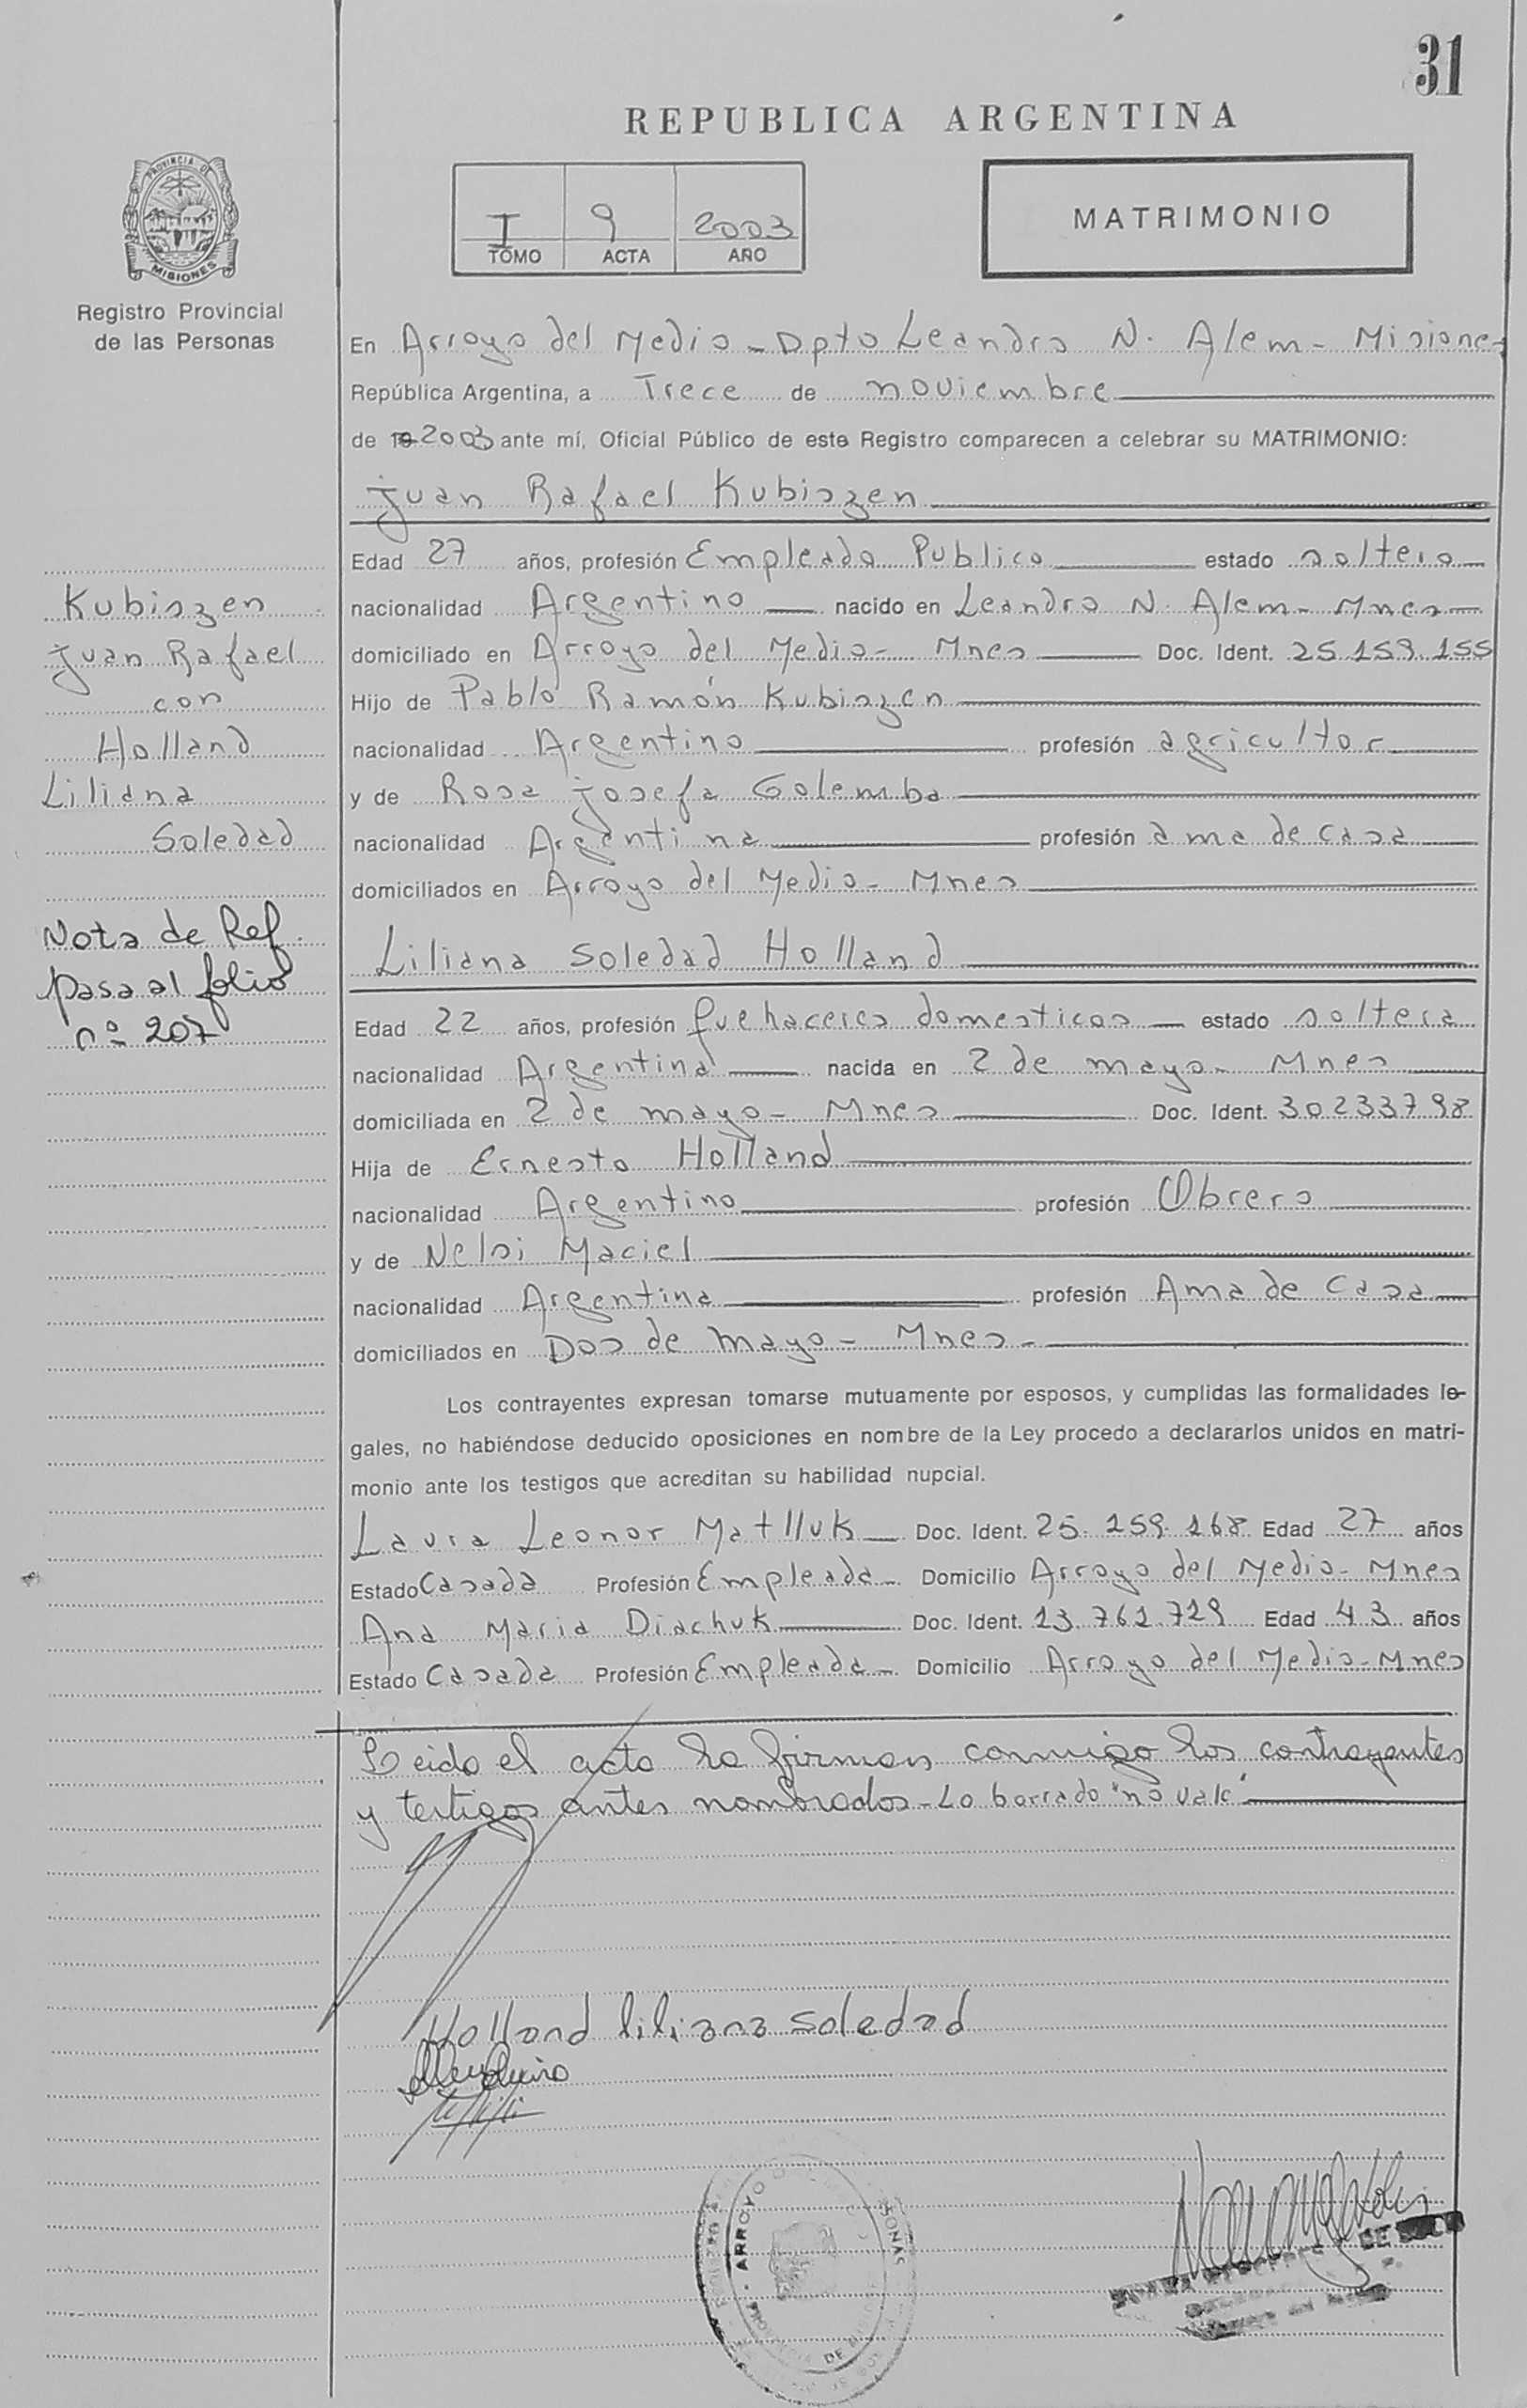 31
REPUBLICA ARGENTINA
PROVINCIA DE
MISIONES
Registro Provincial
de las Personas
I 9 2003
TOMO ACTA AÑO
MATRIMONIO
En Arroyo del Medio - Dpto Leandro N. Alem - Misiones
República Argentina, a Trece de noviembre
de 19 2003 ante mí, Oficial Público de este Registro comparecen a celebrar su MATRIMONIO:
Juan Rafael Kubiszen
Edad 27 años, profesión Empleado Publico estado soltero
nacionalidad Argentino nacido en Leandro N. Alem - Mnes
domiciliado en Arroyo del Medio - Mnes Doc. Ident. 25.159.155
Hijo de Pablo Ramón Kubiszen
nacionalidad Argentino profesión agricultor
y de Rosa Josefa Golemba
nacionalidad Argentina profesión ama de casa
domiciliados en Arroyo del Medio - Mnes
Kubiszen
Juan Rafael
con
Holland
Liliana
Soledad
Nota de Ref.
pasa al folio
nº 207
Liliana Soledad Holland
Edad 22 años, profesión Quehaceres domesticos estado soltera
nacionalidad Argentina nacida en 2 de mayo - Mnes
domiciliada en 2 de mayo - Mnes Doc. Ident. 30233798
Hija de Ernesto Holland
nacionalidad Argentino profesión Obrero
y de Nelsi Maciel
nacionalidad Argentina profesión Ama de Casa
domiciliados en Dos de mayo - Mnes -
Los contrayentes expresan tomarse mutuamente por esposos, y cumplidas las formalidades le-
gales, no habiéndose deducido oposiciones en nombre de la Ley procedo a declararlos unidos en matri-
monio ante los testigos que acreditan su habilidad nupcial.
Laura Leonor Matlluk Doc. Ident. 25.159.168 Edad 27 años
Estado Casada Profesión Empleada - Domicilio Arroyo del Medio - Mnes
Ana Maria Diachuk Doc. Ident. 13.761.729 Edad 43 años
Estado Casada Profesión Empleada - Domicilio Arroyo del Medio - Mnes
Leida el acta la firman conmigo los contrayentes
y testigos antes nombrados - Lo borrado "no vale"
Holland liliana soledad
ARROYO